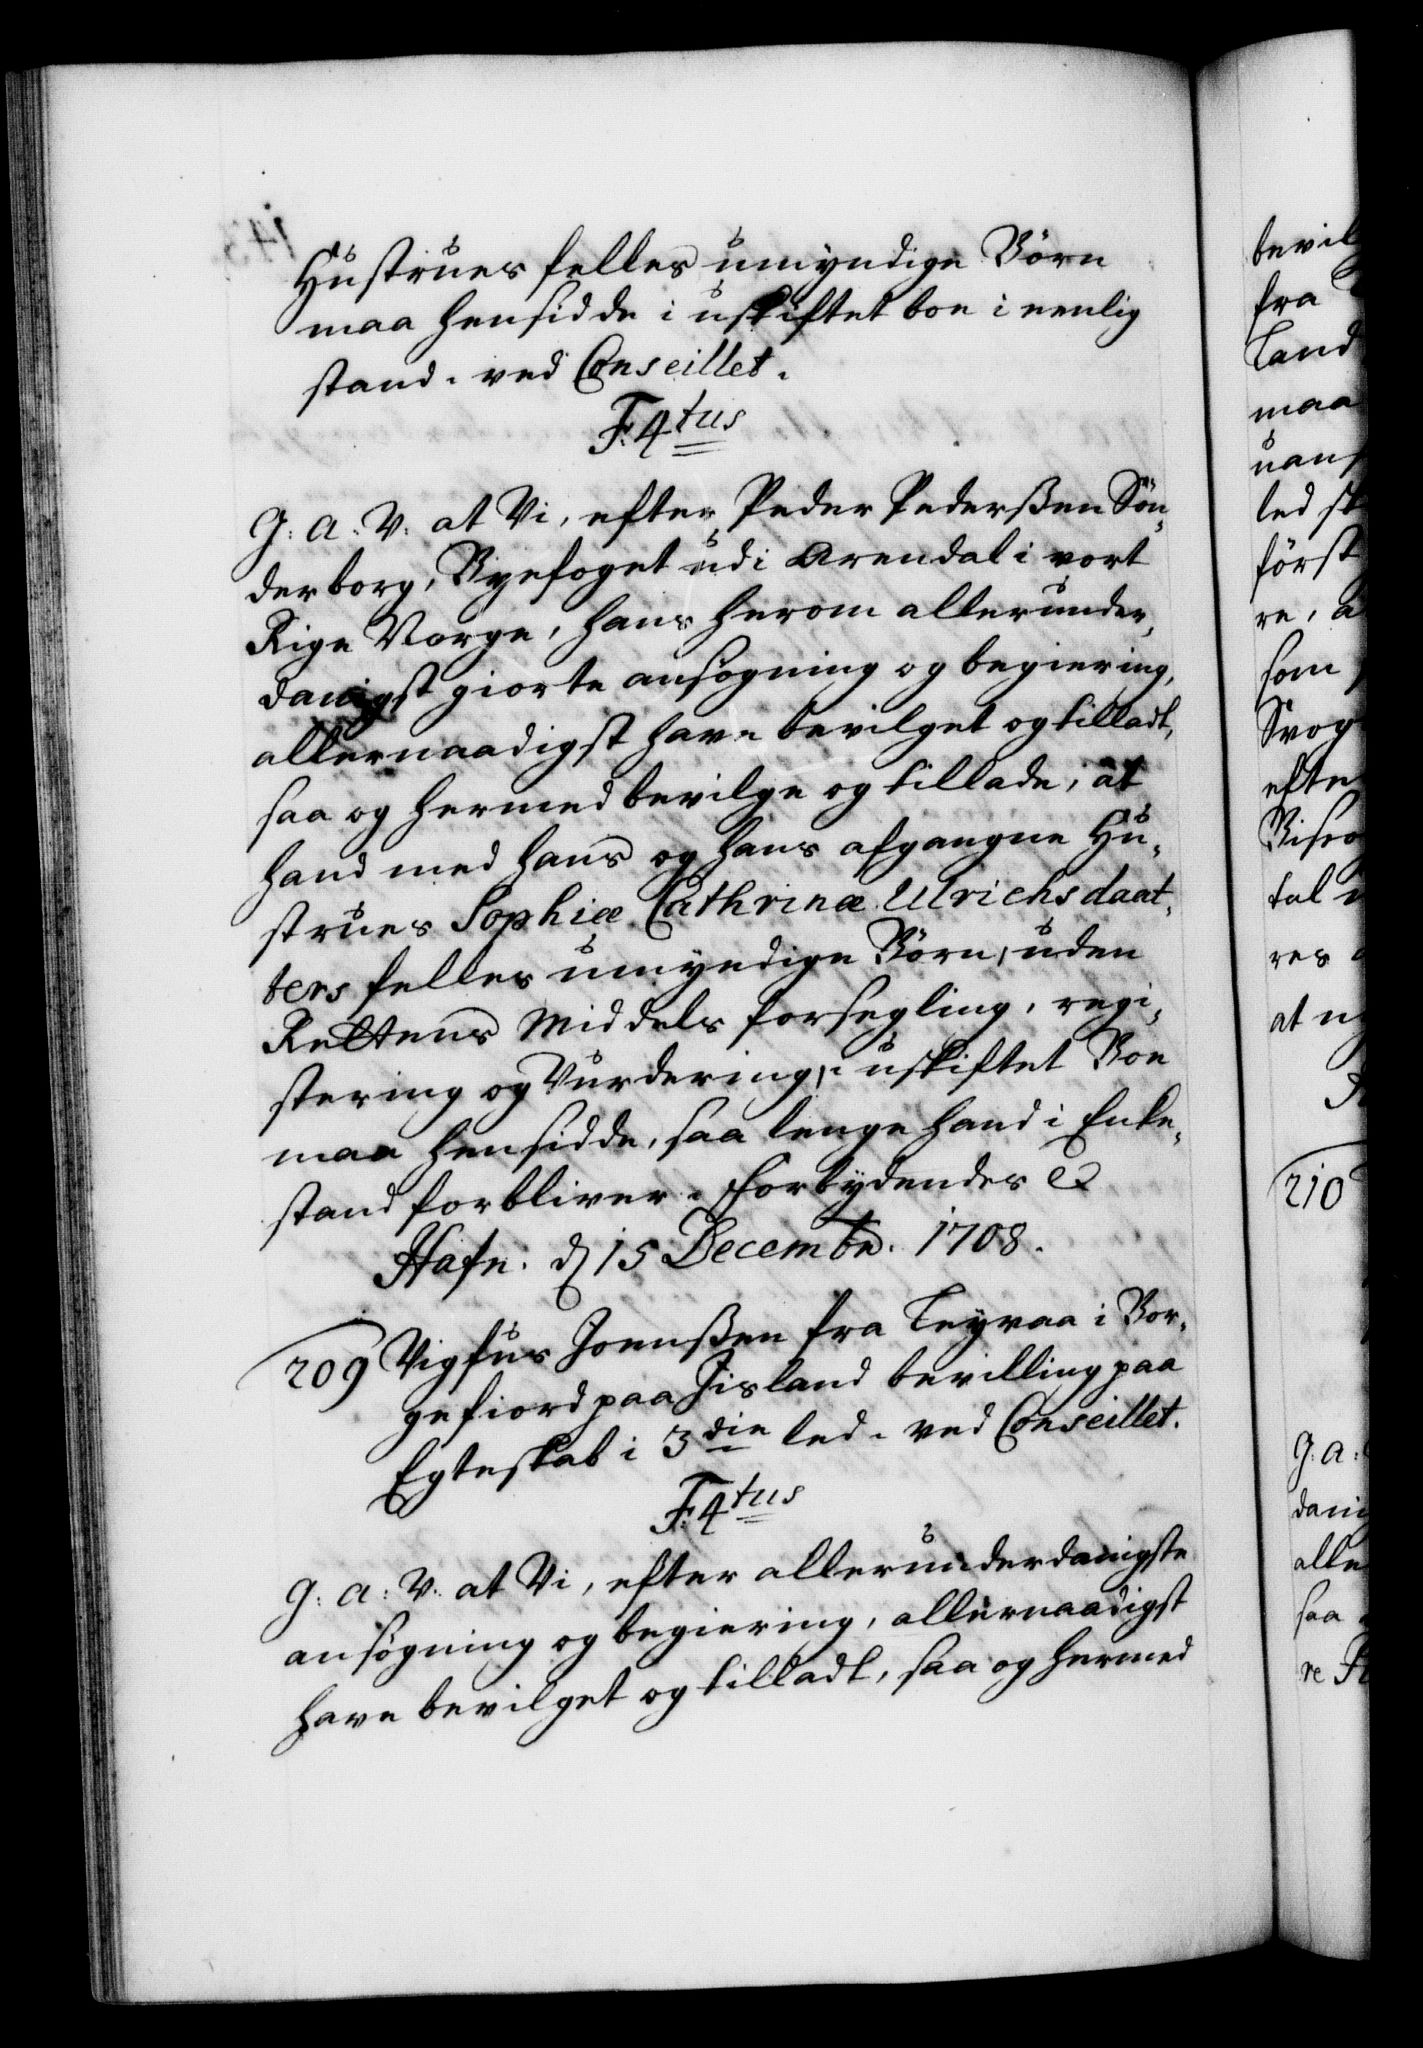 Hustrues felles umyndige Börn
maa hensidde i uskiftet boe i eenlig
stand. ved Conseillet.
F. 4tus
G: A: V: at Vi, efter Peder Pederßen Sön-
derborg, Byefoget udi Arendal i vort
Rige Norge, hans herom allerunder-
danigst giorte ansögning og begiering,
allernaadigst have bevilget og tilladt,
saa og hermed bevilge og tillade, at
hand med hans og hans afgangne Hu-
strues Sophiæ Cathrinæ Ulrichsdaat-
ters felles umyndige Börn, uden
Rettens Middels forsegling, regi-
stering og Vurdering, i uskiftet Boe
maa hensidde, saa lenge hand i Enke-
stand forbliver. Forbydendes &
Hafn. d 15 Decembr. 1708.
209 Vigfus Joenßen fra Leyraa i Bor-
gefiord paa Jisland bevilling paa
Egteskab i 3die led. ved Conseillet.
F. 4tus
G: A: V: at Vi, efter allerunderdanigste
ansögning og begiering, allernaadigst
have bevilget og tilladt, saa og hermed
bevil
fra
Land
maa
uans
led sk
först
re, a
som
Svog
efte
Bisco
tal
res
at
210
G: A:
dani
alle
saa
re